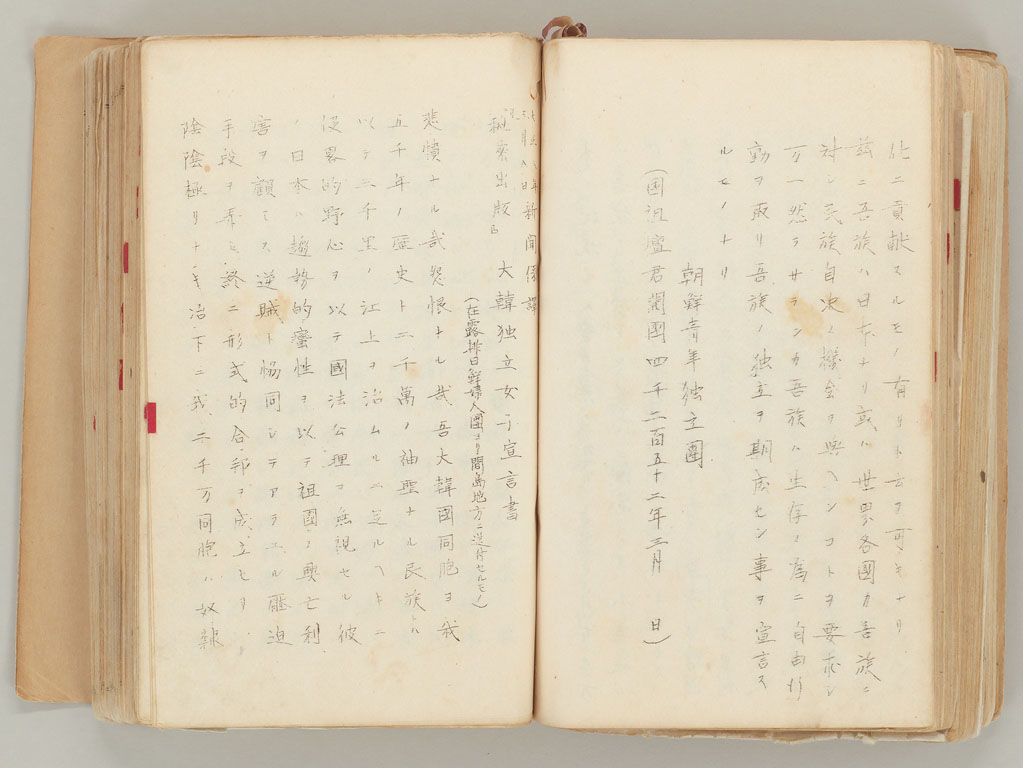 化ニ貢献スルモノ有リト云フ可キナリ
茲ニ吾族ハ日本ナリ或ハ世界各國カ吾族ニ
対シ民族自决ノ機会ヲ與ヘンコトヲ要求シ
万一然ラサランカ吾族ハ生存ノ為ニ自由行
動ヲ取リ吾族ノ独立ヲ期成セン事ヲ宣言ス
ルモノナリ
朝鮮青年独立團
(国祖檀君開國四千二百五十二年三月　日)
三月八日新聞係譯
秘密出版
大韓独立女子宣言書
(在露排日鮮婦人團ヨリ間島地方ニ送付セルモノ)
悲憤ナル哉怨恨ナル哉吾大韓國同胞ヨ我
五千年ノ歴史ト二千萬ノ神聖ナル民族ハ
以テ三千里ノ江上ヲ治ムルニ足ルヘキニ
侵畧的野心ヲ以テ國法公理ヲ無視セル彼
ノ日本ハ趨勢的蛮性ヲ以テ祖國ノ興亡利
害ヲ顧ミス逆賊ト恊同シテアラユル壓迫
手段ヲ弄シ終ニ形式的合邦ヲ成立セリ
陰陰極リナキ治下ニ我二千万同胞ハ奴隷